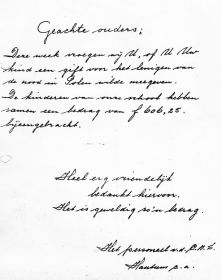 Geachte ouders;
Deze week vroegen wij U, of U Uw
kind een gift voor het lenigen van
de nood in Polen wilde meegeven.
De kinderen van onze school hebben
samen een bedrag van f 606,25.
bijeengebracht.
Heel erg vriendelijk
bedankt hiervoor.
Het is geweldig zo'n bedrag.
Het personeel v.d.
Hantum e.a.